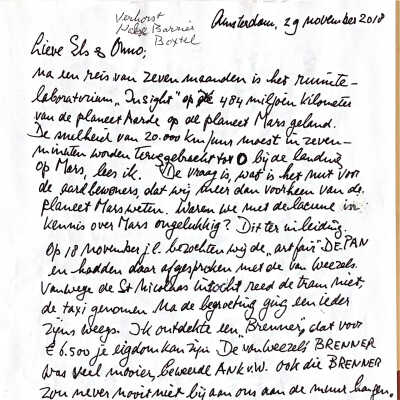 Verhorst
Helse Barrier
Boxtel
Amsterdam, 29 november 2018
Lieve Els & Onno,
Na een reis van zeven maanden is het ruimte-
laboratorium "Insight" op de 484 miljoen kilometer
van de planeet aarde op de planeet Mars geland.
De snelheid van 20.000 km/uur moest in zeven
minuten worden teruggebracht tot 0 bij de landing
op Mars, lees ik. De vraag is, wat is het nut voor
de aardbewoners, dat wij meer dan voorheen van de
planeet Mars weten. Waren we met de kennis
kennis over Mars ongelukkig? Dit ter inleiding.
Op 18 november j.l. bezochten wij de "art fair" DE PAN
en hadden daar afgesproken met de van Weezels.
Vanwege de St Nicolaas intocht reed de tram niet,
de taxi genomen. Na de begroeting ging een ieder
zijns weegs. Ik ontdekte een "Brenner", dat voor
€ 6.500 je eigdom kan zijn. De van Weezels BRENNER
was veel mooier, beweerde ANK v.W. ook die BRENNER
zou never nooit niet bij aan ons aan de muur hangen.